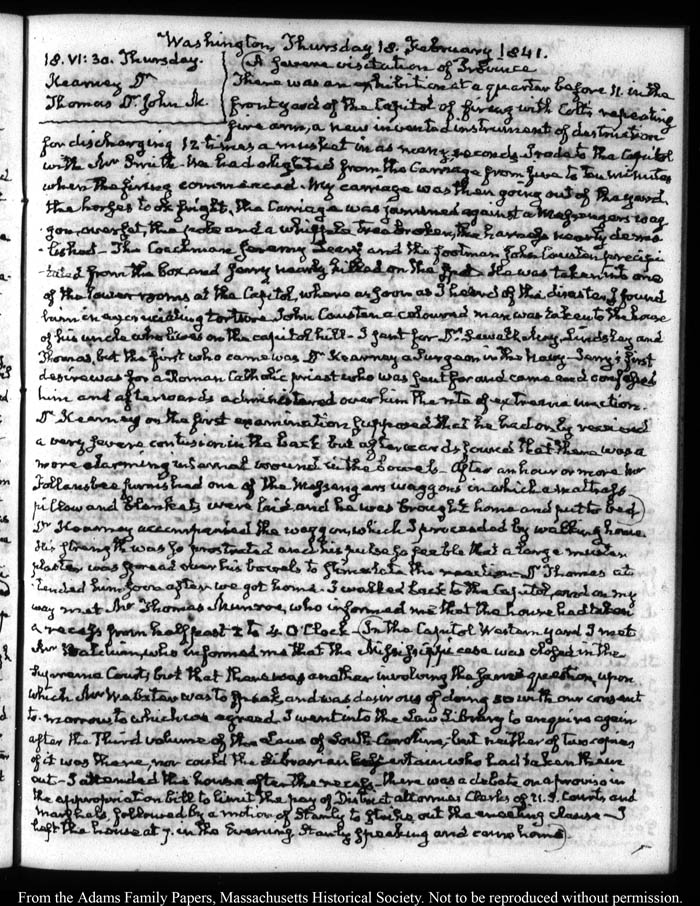 Washington, Thursday 18. February 1841.
18. VI:30. Thursday.
Kearney Dr
Thomas Dr. John M.
(A severe visitation of Providence
There was an exhibition at a quarter before 11. in the
front yard of the Capitol of firing with Colt's repeating
fire arm, a new invented instrument of destruction
for discharging 12 times a musket in as many seconds. I rode to the Capitol
with Mr Smith. We had alighted from the Carriage from five to ten minutes
when the firing commenced. My carriage was then going out of the yard,
the horses took fright, the Carriage was jammed against a Messengers wag-
gon, overset, the pole and a whipple tree broken, the harness nearly demo-
-lished— The Coachman Jeremy Leary and the footman John Causten precipi-
-tated from the box, and Jerry nearly killed on the spot. He was taken into one
of the lower rooms at the Capitol, where as soon as I heard of the disaster, I found
him in excruciating torture. John Causten a coloured man was taken to the house
of his uncle who lives on the capitol hill— I sent for Drs. Sewall, Lindsley and
Thomas, but the first who came was Dr Kearney a Surgeon in the Navy— Jerry's first
desire was for a Roman Catholic priest who was sent for and came and confessed
him and afterwards administered over him the rite of extreme unction.
Dr Kearney on the first examination supposed that he had only received
a very severe contusion in the back but afterwards found that there was a
more alarming internal wound in the bowels— After an hour or more Mr
Follansbee furnished one of the Messengers waggons in which a mattrass
pillow and blankets were laid, and he was brought home and put to bed)
Dr Kearney accompanied the waggon, which I preceded by walking home.
His strength was so prostrated and his pulse so feeble that a large mustard
plaster was spread over his bowels to stimulate the reaction— Dr Thomas at-
tended him soon after we got home. I walked back to the Capitol, and on my
way met Mr Thomas Munroe, who informed me that the house had taken
a recess from half past 2 to 4 O'Clock— (In the Capitol Western yard I met
Mr Baldwin, who informed me that the Mississippi case was closed in the
Supreme Court, but that there was another involving the same question upon
which Mr Webster was to speak, and was desirous of doing so with our consent
to-morrow to which we agreed. I went into the Law Library to enquire again
after the Third volume of the Laws of South-Carolina, but neither of two copies
of it was there, nor could the Librarian ascertain who had taken them
out— I attended the house after the recess— there was a debate on a proviso in
the appropriation bill to limit the pay of District attornies Clerks of U.S. Courts and
Marshals, followed by a motion of Stanly to strike out the enacting clause— I
left the house at 7. in the Evening Stanly speaking and came home)
From the Adams Family Papers, Massachusetts Historical Society. Not to be reproduced without permission.